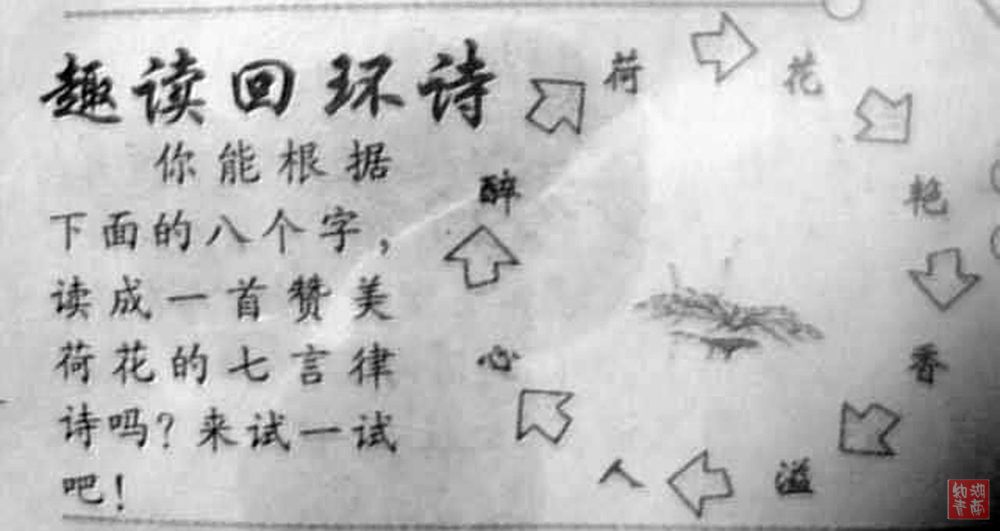 趣读回环诗
你能根据
下面的八个字，
读成一首赞美
荷花的七言律
诗吗？来试一试
吧！
荷
花
艳
香
溢
人
心
醉